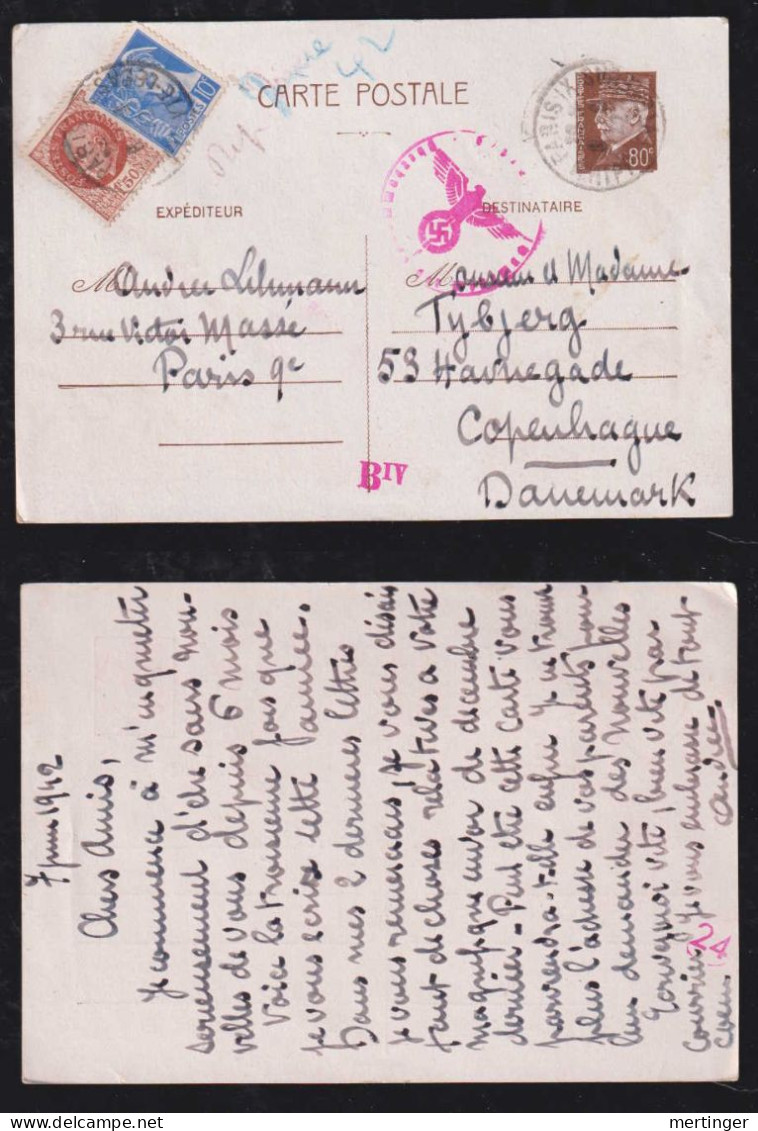 Réponse
42
CARTE POSTALE
80c
10c
1F50
EXPÉDITEUR
DESTINATAIRE
M Andrée Lehmann
3 rue Victor Massé
Paris 9e
Monsieur et Madame
Tybjerg
53 Havnegade
Copenhague
Danemark
BIV
7 juin 1942
Chers Amis,
Je commence à m'inquiéter
sérieusement d'être sans nou-
velles de vous depuis 6 mois
Voici la troisième fois que
je vous écris cette année.
Dans mes 2 dernières lettres
je vous remerciais, je vous disais
tant de choses relatives à votre
magnifique envoi de décembre
dernier - Peut être cette carte vous
parviendra-t-elle enfin je ne trouve
plus l'adresse de vos parents pour
leur demander des nouvelles
Ecrivez moi vite, bien vite par
courrier, je vous embrasse de tout
coeur
Andrée
24
mertinger